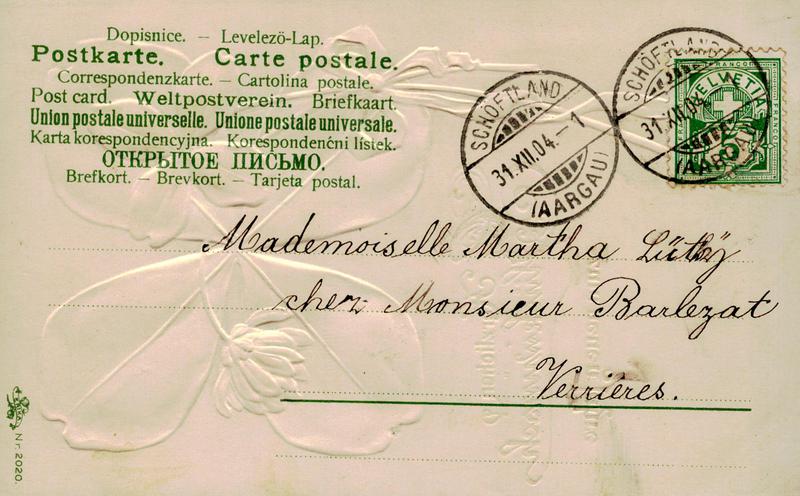 Dopisnice. — Levelezö-Lap.
Postkarte. Carte postale.
Correspondenzkarte. — Cartolina postale.
Post card. Weltpostverein. Briefkaart.
Union postale universelle. Unione postale universale.
Karta korespondencyjna. Korespondenční lístek.
ОТКРЫТОЕ ПИСЬМО.
Brefkort. — Brevkort. — Tarjeta postal.
SCHÖFTLAND
31.XII.04.–1
(AARGAU)
SCHÖFTLAND
31.XII.04
(AARGAU)
FRANCO
HELVETIA
5
Mademoiselle Martha Lüthy
chez Monsieur Barlezat
Verrières.
Nr. 2020.